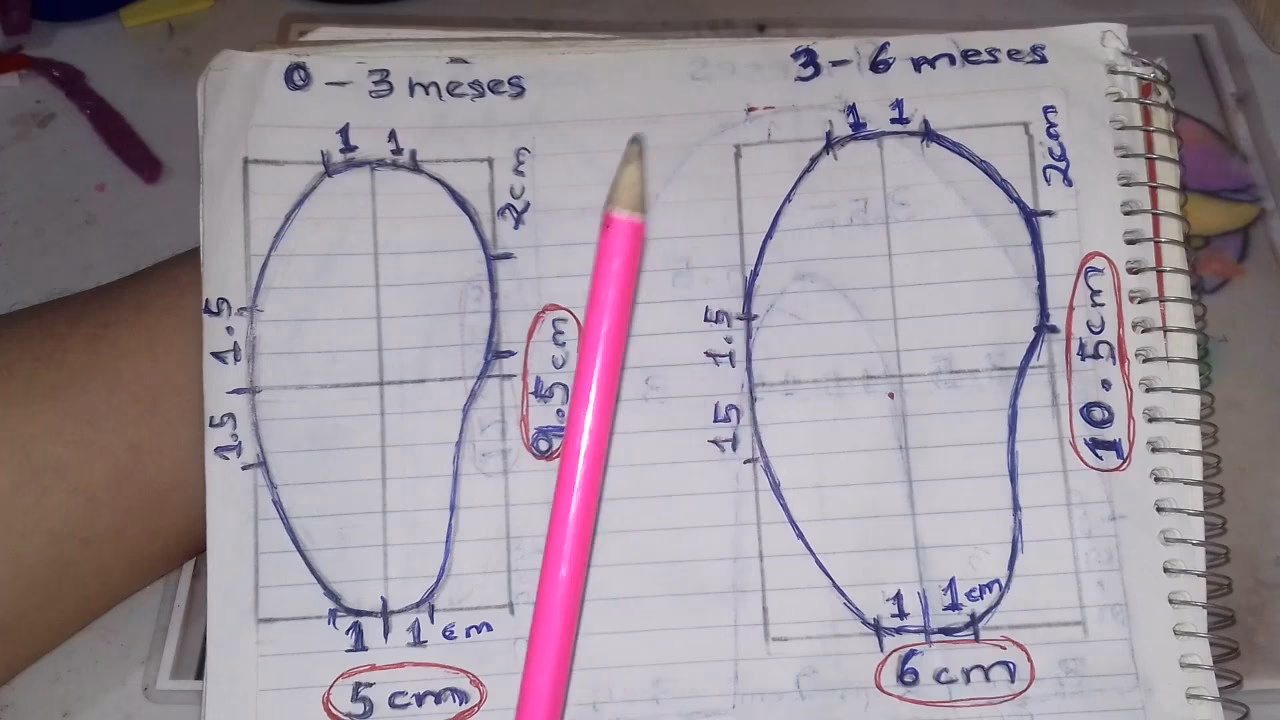 0 - 3 meses
3 - 6 meses
1 1
2cm
1 1
2cm
1.5
1.5
9.5cm
1.5
15
10.5cm
1 1 cm
5 cm
1 1cm
6 cm